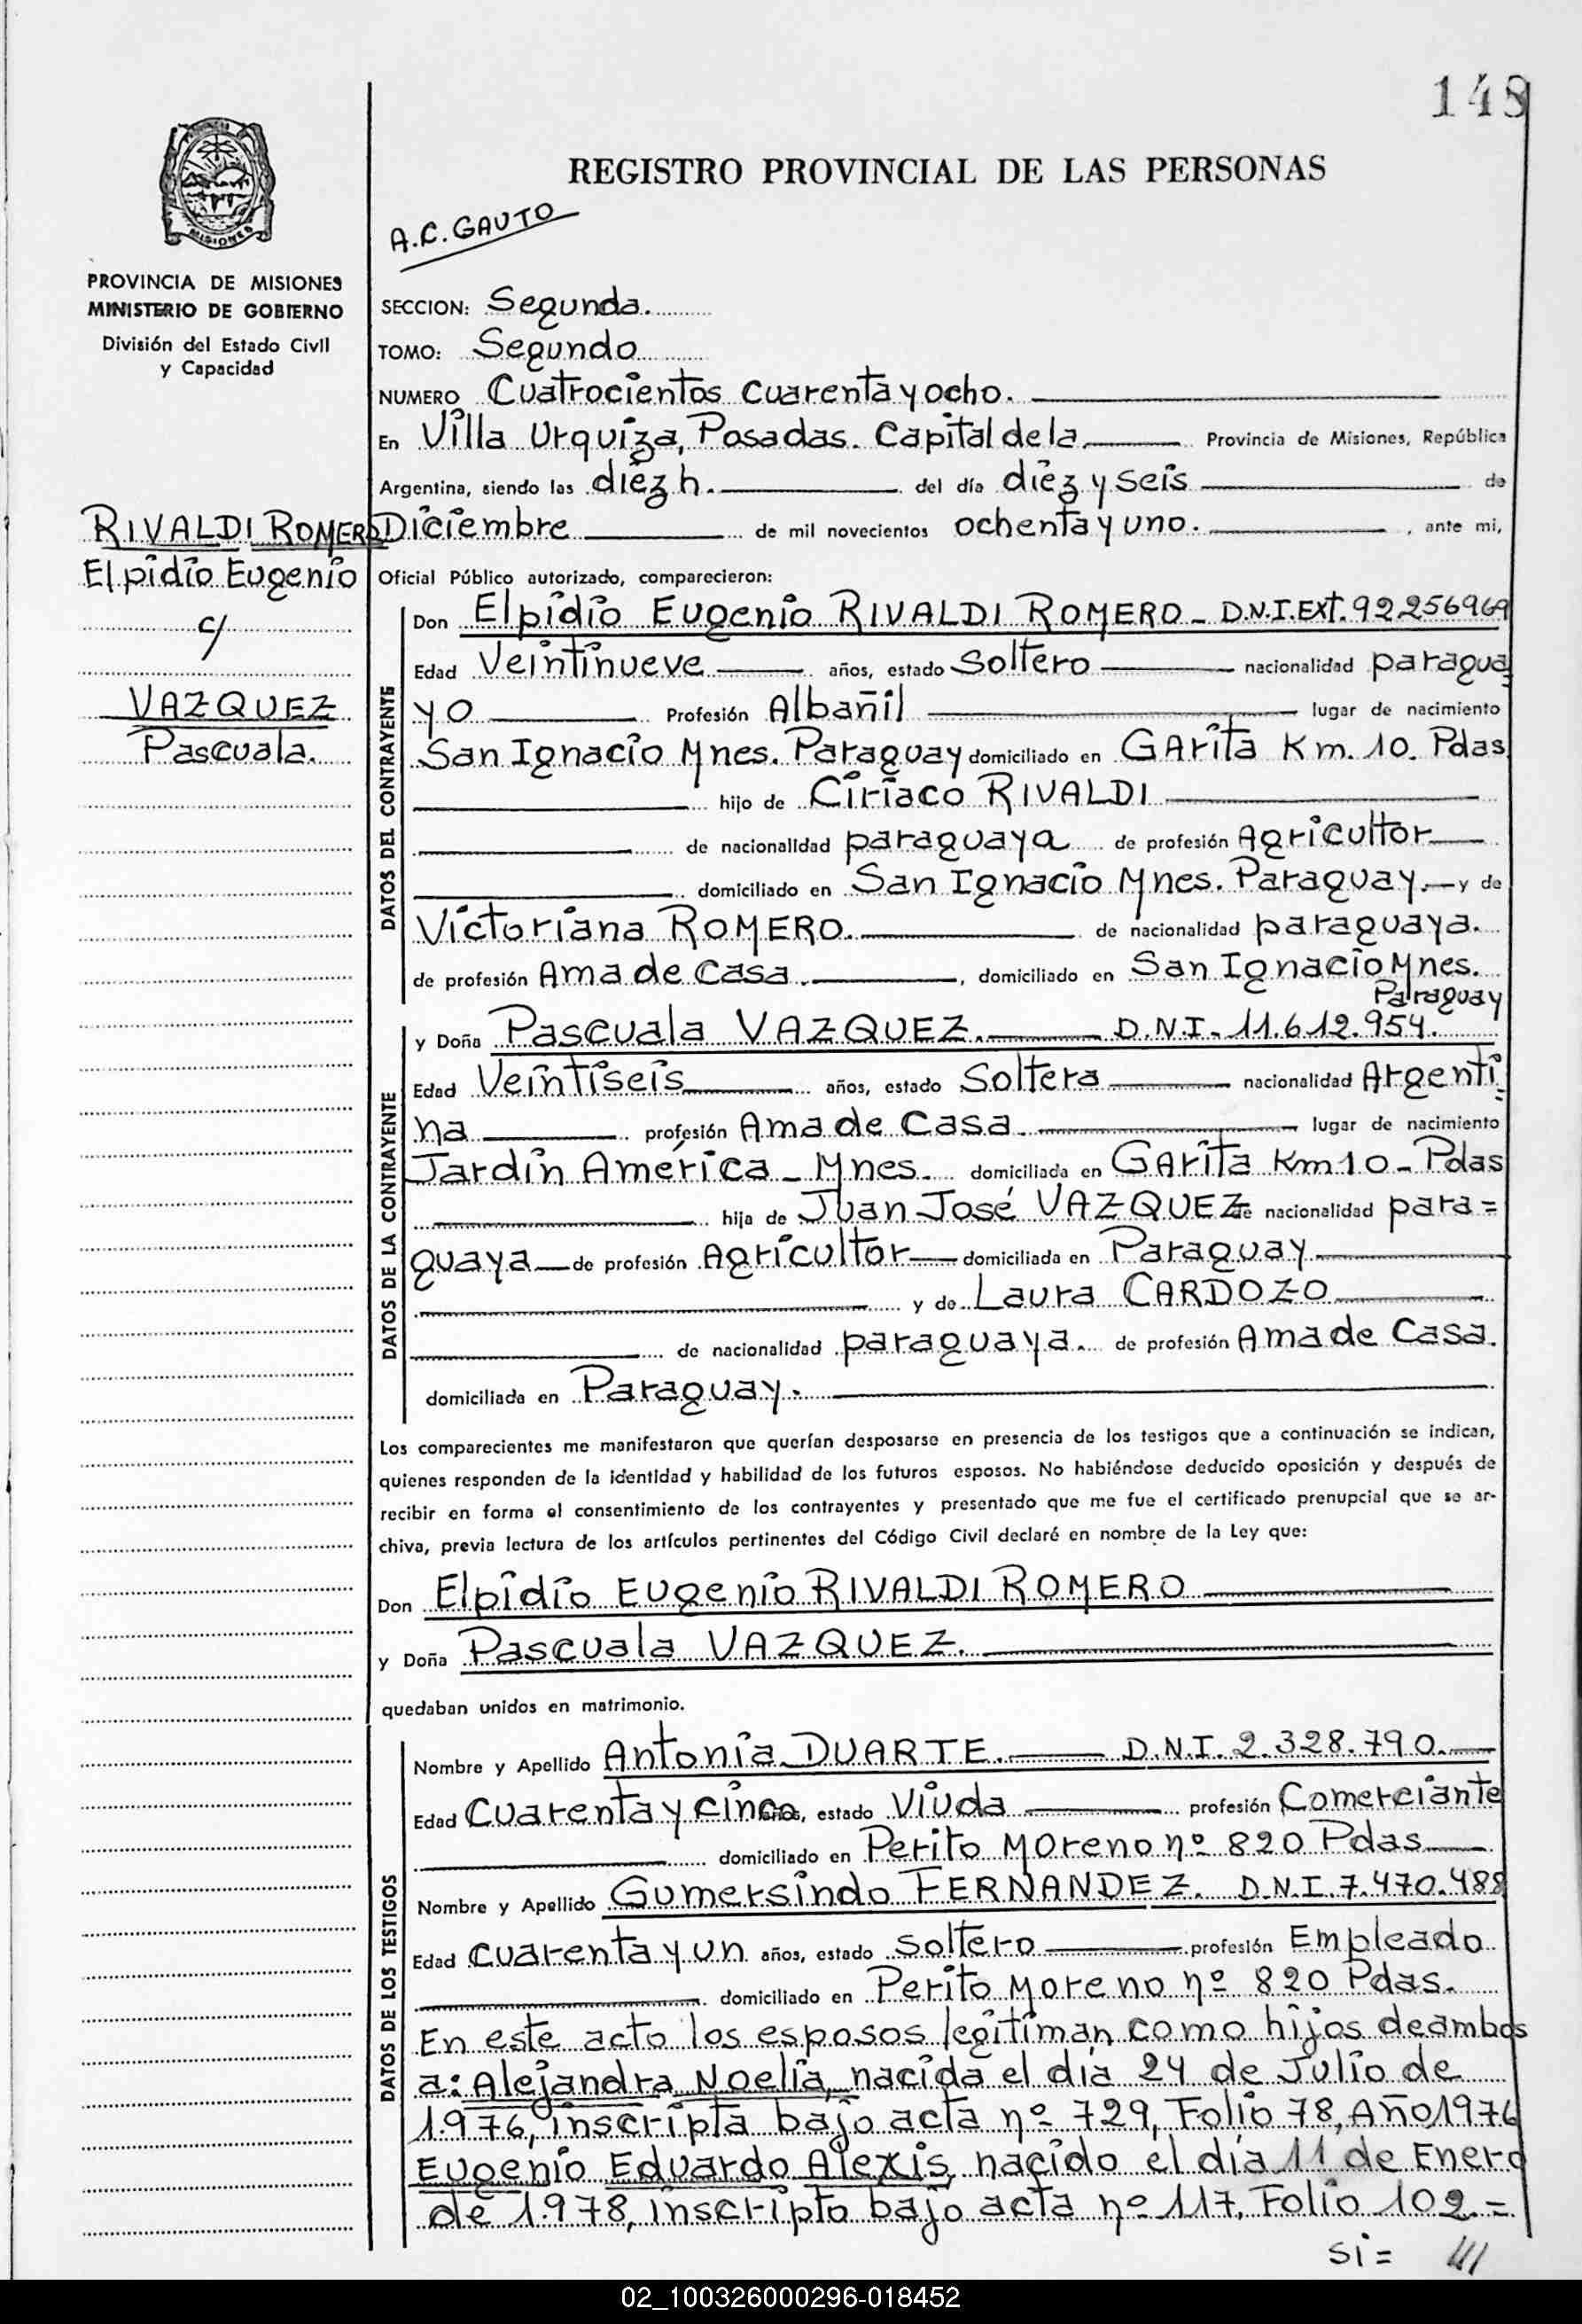 148
REGISTRO PROVINCIAL DE LAS PERSONAS
A.C. GAUTO
MISIONES
PROVINCIA DE MISIONES
MINISTERIO DE GOBIERNO
División del Estado Civil
y Capacidad
RIVALDI ROMERO
Elpidio Eugenio
c/
VAZQUEZ
Pascuala.
SECCION: Segunda.
TOMO: Segundo
NUMERO Cuatrocientos cuarenta y ocho.
En Villa Urquiza, Posadas. Capital de la Provincia de Misiones, República
Argentina, siendo las diéz h. del día diéz y seis de
Diciembre de mil novecientos ochenta y uno. , ante mi,
Oficial Público autorizado, comparecieron:
DATOS DEL CONTRAYENTE
Don Elpidio Eugenio RIVALDI ROMERO - D.N.I. EXT. 92256969
Edad Veintinueve años, estado Soltero nacionalidad paragua=
yo Profesión Albañil lugar de nacimiento
San Ignacio Mnes. Paraguay domiciliado en GArita Km. 10. Pdas
hijo de Ciriaco RIVALDI
de nacionalidad paraguaya de profesión Agricultor
domiciliado en San Ignacio Mnes. Paraguay. y de
Victoriana ROMERO. de nacionalidad paraguaya.
de profesión Ama de Casa. , domiciliado en San Ignacio Mnes.
Paraguay
DATOS DE LA CONTRAYENTE
y Doña Pascuala VAZQUEZ. D.N.I. 11.612.954.
Edad Veintiseis años, estado Soltera nacionalidad Argenti=
na profesión Ama de Casa. lugar de nacimiento
Jardín América - Mnes. domiciliada en GArita Km 10 - Pdas
hija de Juan José VAZQUEZ de nacionalidad para=
guaya de profesión Agricultor domiciliada en Paraguay.
y de Laura CARDOZO
de nacionalidad paraguaya. de profesión Ama de Casa.
domiciliada en Paraguay.
Los comparecientes me manifestaron que querían desposarse en presencia de los testigos que a continuación se indican,
quienes responden de la identidad y habilidad de los futuros esposos. No habiéndose deducido oposición y después de
recibir en forma el consentimiento de los contrayentes y presentado que me fue el certificado prenupcial que se ar-
chiva, previa lectura de los artículos pertinentes del Código Civil declaré en nombre de la Ley que:
Don Elpidio Eugenio RIVALDI ROMERO
y Doña Pascuala VAZQUEZ.
quedaban unidos en matrimonio.
DATOS DE LOS TESTIGOS
Nombre y Apellido Antonia DUARTE. D.N.I. 2.328.790.
Edad Cuarenta y cinco años, estado Viuda profesión Comerciante
domiciliado en Perito Moreno nº 820 Pdas
Nombre y Apellido Gumersindo FERNANDEZ. D.N.I. 7.470.488
Edad cuarenta y un años, estado soltero profesión Empleado
domiciliado en Perito Moreno nº 820 Pdas.
En este acto los esposos legitiman como hijos de ambos
a: Alejandra Noelia, nacida el día 24 de Julio de
1.976, inscripta bajo acta nº 729, Folio 78, Año 1976
Eugenio Eduardo Alexis, nacido el día 11 de Enero
de 1.978, inscripto bajo acta nº 117, Folio 102.=
si=
02_100326000296-018452